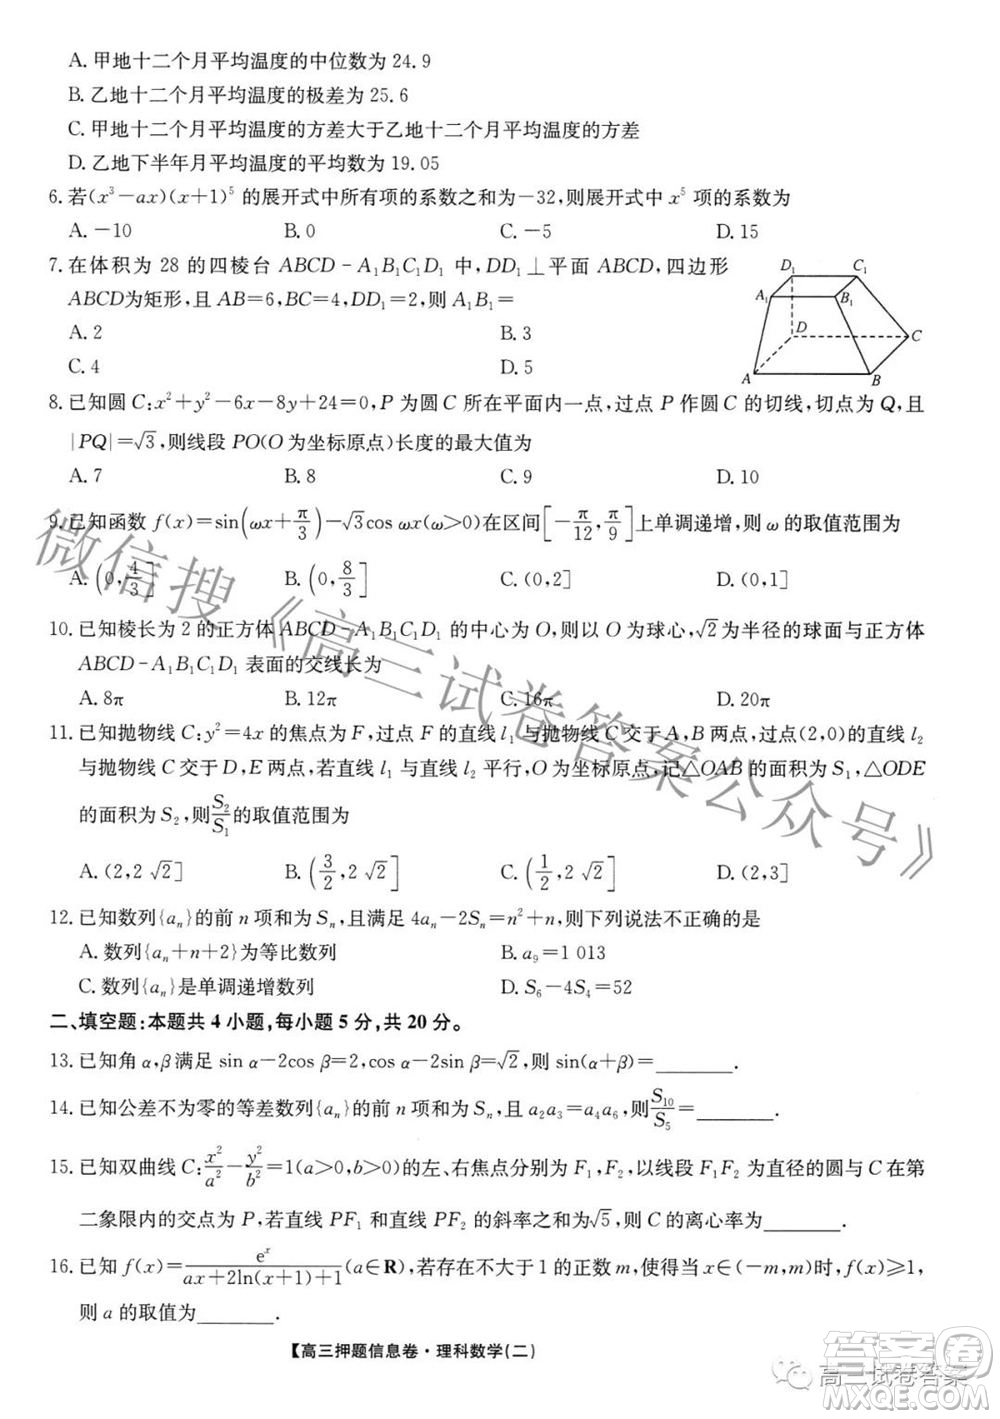 A. 甲地十二个月平均温度的中位数为 24.9
B. 乙地十二个月平均温度的极差为 25.6
C. 甲地十二个月平均温度的方差大于乙地十二个月平均温度的方差
D. 乙地下半年月平均温度的平均数为 19.05
6. 若(x³−ax)(x+1)⁵ 的展开式中所有项的系数之和为−32,则展开式中 x⁵ 项的系数为
A. −10 B. 0 C. −5 D. 15
7. 在体积为 28 的四棱台 ABCD−A₁B₁C₁D₁ 中,DD₁⊥平面 ABCD,四边形
ABCD为矩形,且 AB=6,BC=4,DD₁=2,则 A₁B₁=
A. 2 B. 3
C. 4 D. 5
D₁ C₁
A₁ B₁
D C
A B
8. 已知圆 C:x²+y²−6x−8y+24=0,P 为圆 C 所在平面内一点,过点 P 作圆 C 的切线,切点为 Q,且
|PQ|=√3,则线段 PO(O 为坐标原点)长度的最大值为
A. 7 B. 8 C. 9 D. 10
9. 已知函数 f(x)=sin(ωx+π/3)−√3cos ωx(ω>0)在区间[−π/12,π/9]上单调递增,则 ω 的取值范围为
A. (0,4/3] B. (0,8/3] C. (0,2] D. (0,1]
10. 已知棱长为 2 的正方体 ABCD−A₁B₁C₁D₁ 的中心为 O,则以 O 为球心,√2为半径的球面与正方体
ABCD−A₁B₁C₁D₁ 表面的交线长为
A. 8π B. 12π C. 16π D. 20π
11. 已知抛物线 C:y²=4x 的焦点为 F,过点 F 的直线 l₁ 与抛物线 C 交于 A,B 两点,过点(2,0)的直线 l₂
与抛物线 C 交于 D,E 两点,若直线 l₁ 与直线 l₂ 平行,O 为坐标原点,记△OAB 的面积为 S₁,△ODE
的面积为 S₂,则S₂/S₁的取值范围为
A. (2,2√2] B. (3/2,2√2] C. (1/2,2√2] D. (2,3]
12. 已知数列{aₙ}的前 n 项和为 Sₙ,且满足 4aₙ−2Sₙ=n²+n,则下列说法不正确的是
A. 数列{aₙ+n+2}为等比数列 B. a₉=1 013
C. 数列{aₙ}是单调递增数列 D. S₆−4S₄=52
二、填空题:本题共 4 小题,每小题 5 分,共 20 分。
13. 已知角 α,β 满足 sin α−2cos β=2,cos α−2sin β=√2,则 sin(α+β)=________.
14. 已知公差不为零的等差数列{aₙ}的前 n 项和为 Sₙ,且 a₂a₃=a₄a₆,则S₁₀/S₅=________.
15. 已知双曲线 C:x²/a²−y²/b²=1(a>0,b>0)的左、右焦点分别为 F₁,F₂,以线段 F₁F₂ 为直径的圆与 C 在第
二象限内的交点为 P,若直线 PF₁ 和直线 PF₂ 的斜率之和为√5,则 C 的离心率为________.
16. 已知 f(x)=eˣ/(ax+2ln(x+1)+1)(a∈R),若存在不大于 1 的正数 m,使得当 x∈(−m,m)时,f(x)≥1,
则 a 的取值为________.
【高三押题信息卷·理科数学(二)
微信搜《高三试卷答案公众号》
高三试卷答案
答案圈
MXQE.COM